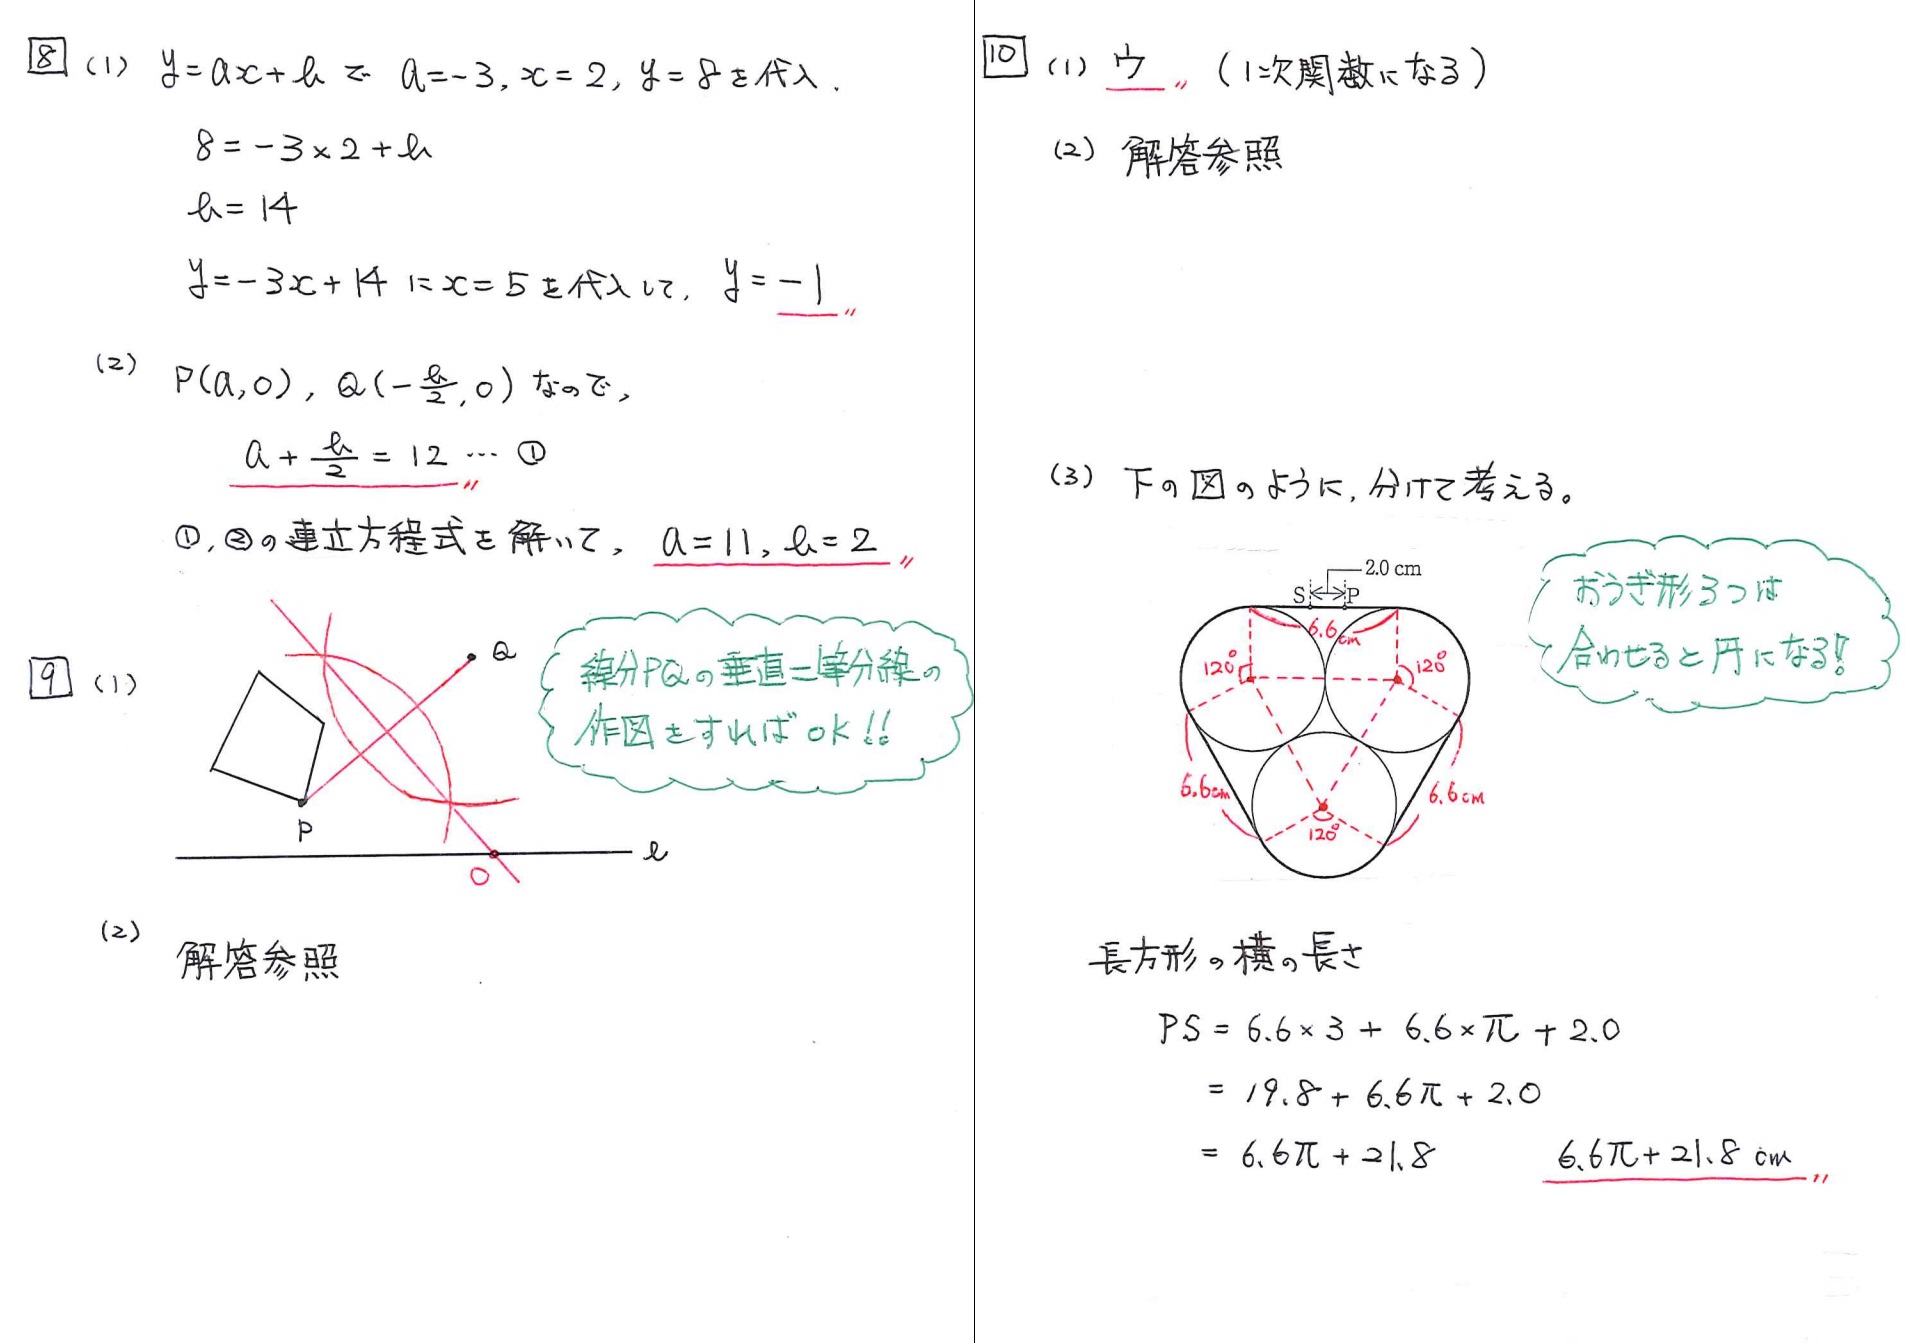 8 (1) y=ax+b で a=-3, x=2, y=8を代入.
8=-3×2+b
b=14
y=-3x+14にx=5を代入して, y=-1〃
(2) P(a,0), Q(-b/2,0)なので,
a+b/2=12 … ①〃
①,②の連立方程式を解いて, a=11, b=2〃
9 (1)
Q
線分PQの垂直二等分線の
作図をすればOK!!
P
ℓ
O
(2) 解答参照
10 (1) ウ〃 (1次関数になる)
(2) 解答参照
(3) 下の図のように,分けて考える。
2.0 cm
S P
6.6cm
120° 120°
おうぎ形3つは
合わせると円になる!!
6.6cm 6.6cm
120°
長方形の横の長さ
PS=6.6×3+6.6×π+2.0
=19.8+6.6π+2.0
=6.6π+21.8 6.6π+21.8 cm〃